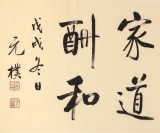 家道
酬和
戊戌冬日
元樸